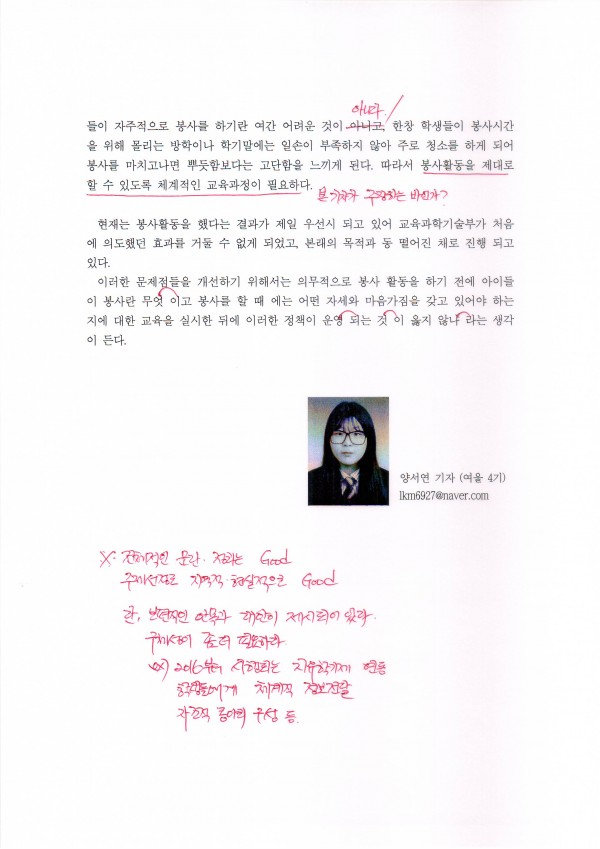 아니라
들이 자주적으로 봉사를 하기란 여간 어려운 것이 아니고, 한창 학생들이 봉사시간
을 위해 몰리는 방학이나 학기말에는 일손이 부족하지 않아 주로 청소를 하게 되어
봉사를 마치고나면 뿌듯함보다는 고단함을 느끼게 된다. 따라서 봉사활동을 제대로
할 수 있도록 체계적인 교육과정이 필요하다.
본 기자가 주장하는 바인가?
현재는 봉사활동을 했다는 결과가 제일 우선시 되고 있어 교육과학기술부가 처음
에 의도했던 효과를 거둘 수 없게 되었고, 본래의 목적과 동 떨어진 채로 진행 되고
있다.
이러한 문제점들을 개선하기 위해서는 의무적으로 봉사 활동을 하기 전에 아이들
이 봉사란 무엇 이고 봉사를 할 때 에는 어떤 자세와 마음가짐을 갖고 있어야 하는
지에 대한 교육을 실시한 뒤에 이러한 정책이 운영 되는 것 이 옳지 않나 라는 생각
이 든다.
양서연 기자 (여울 4기)
lkm6927@naver.com
※ 전체적인 문단·전개는 Good
주제선정도 지역적·현실적으로 Good
단, 보편적인 안목과 대안이 제시되어 있다.
구체성이 좀 더 필요하다
예) 2016부터 시행되는 자유학기제 연동
학생들에게 체계적 정보전달
자조직 동아리 구성 등.